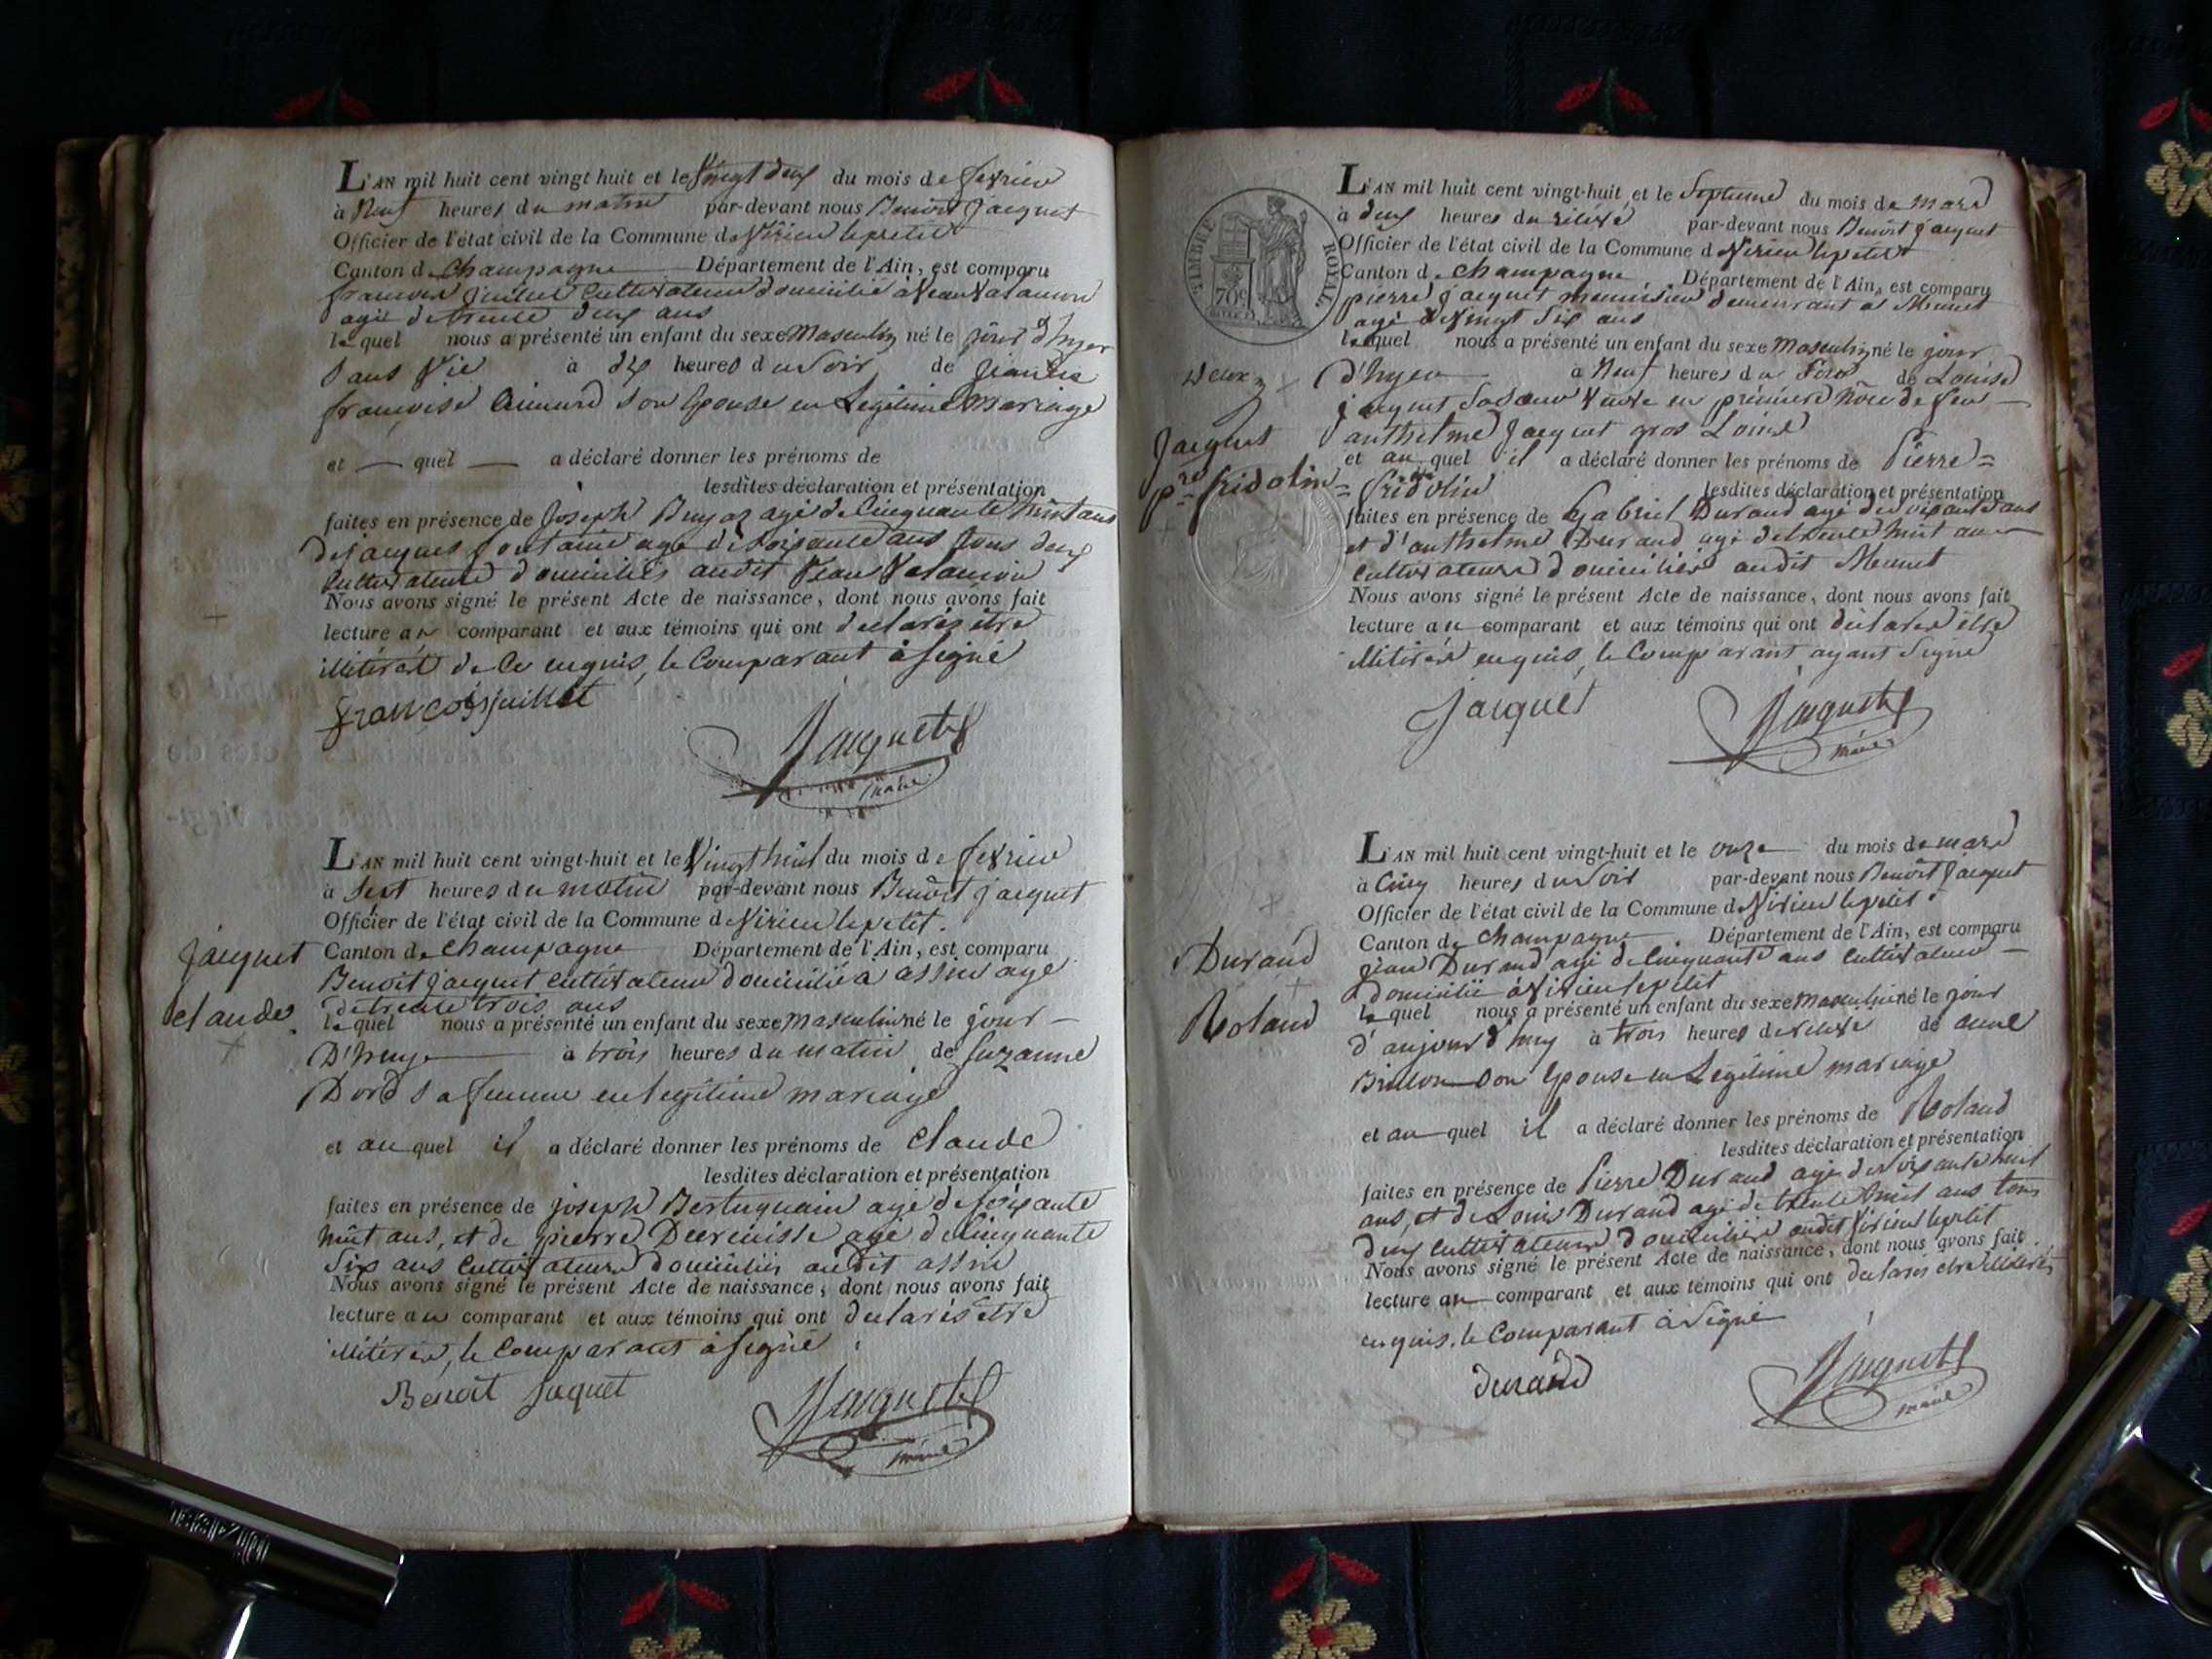 L'AN mil huit cent vingt huit et le vingt deux du mois de fevrier
à Neuf heures du matin par-devant nous Benoît Jacquet
Officier de l'état civil de la Commune de Virieu le petit
Canton de Champagne Département de l'Ain, est comparu
françois Juillet Cultivateur domicilié à Vaux
agé de trente deux ans
lequel nous a présenté un enfant du sexe Masculin né le jour d'hyer
sans Vie à dix heures du soir de
françoise son Epouse en Légitime Mariage
et — quel — a déclaré donner les prénoms de
lesdites déclaration et présentation
faites en présence de Joseph agé de Cinquante huit ans
de jacques fontaine agé de soixante ans tous deux
Cultivateurs domiciliés audit
Nous avons signé le présent Acte de naissance, dont nous avons fait
lecture au comparant et aux témoins qui ont declarés être
illiterés de ce enquis, le Comparant à signé
françois juillet
Jacquet
maire
L'AN mil huit cent vingt-huit et le Vingt huit du mois de fevrier
à sept heures du matin par-devant nous Benoît jacquet
Officier de l'état civil de la Commune de Virieu le petit.
jacquet
Canton de Champagne Département de l'Ain, est comparu
Benoit Jacquet Cultivateur domicilié à assin agé
de trente trois ans
claude
lequel nous a présenté un enfant du sexe masculin né le jour
D'huy à trois heures du matin de Suzanne
Dord sa femme en legitime mariage
et au quel il a déclaré donner les prénoms de Claude
lesdites déclaration et présentation
faites en présence de joseph agé de soixante
huit ans, et de pierre agé de Cinquante
Six ans Cultivateurs domiciliés audit assin
Nous avons signé le présent Acte de naissance, dont nous avons fait
lecture au comparant et aux témoins qui ont declarés etre
illiterés, le Comparant à signé
Benoit Jaquet
Jacquet
maire
TIMBRE ROYAL
70c
L'AN mil huit cent vingt-huit et le Septieme du mois de mars
à deux heures du relevé par-devant nous Benoît jacquet
Officier de l'état civil de la Commune de Virieu le petit
Canton de Champagne Département de l'Ain, est comparu
pierre jacquet menuisier demeurant à Munet
agé de Vingt Six ans
lequel nous a présenté un enfant du sexe Masculin né le jour
deux
d'hyer à Neuf heures du soir de Louise
jacquet Sa soeur Veuve en premiere Nôce de feu
Jacquet
anthelme Jacquet gros Louis
et au quel il a déclaré donner les prénoms de Pierre=
pre fridolin=
fridolin lesdites déclaration et présentation
faites en présence de Gabriel Durand agé de soixante ans
et d'anthelme Durand agé de trente huit ans
Cultivateurs domiciliés audit Munet
Nous avons signé le présent Acte de naissance, dont nous avons fait
lecture au comparant et aux témoins qui ont déclarés être
illiterés enquis, le Comparant ayant Signé
Jacquet
Jacquet
maire
L'AN mil huit cent vingt-huit et le onze du mois de mars
à Cinq heures du soir par-devant nous Benoît Jacquet
Officier de l'état civil de la Commune de Virieu le petit.
Canton de Champagne Département de l'Ain, est comparu
Durand
jean Durand agé de Cinquante ans Cultivateur
domicilié à Virieu le petit
Roland
lequel nous a présenté un enfant du sexe masculin né le jour
d'aujourd'huy à trois heures de relevé de anne
Brillon son Epouse en Legitime mariage
et au quel il a déclaré donner les prénoms de Roland
lesdites déclaration et présentation
faites en présence de Pierre Durand agé de soixante huit
ans, et de Louis Durand agé de trente huit ans tous
deux Cultivateurs domiciliés audit Virieu le petit
Nous avons signé le présent Acte de naissance, dont nous avons fait
lecture au comparant et aux témoins qui ont declarés etre illiterés
enquis, le Comparant à Signé
durand
Jacquet
maire